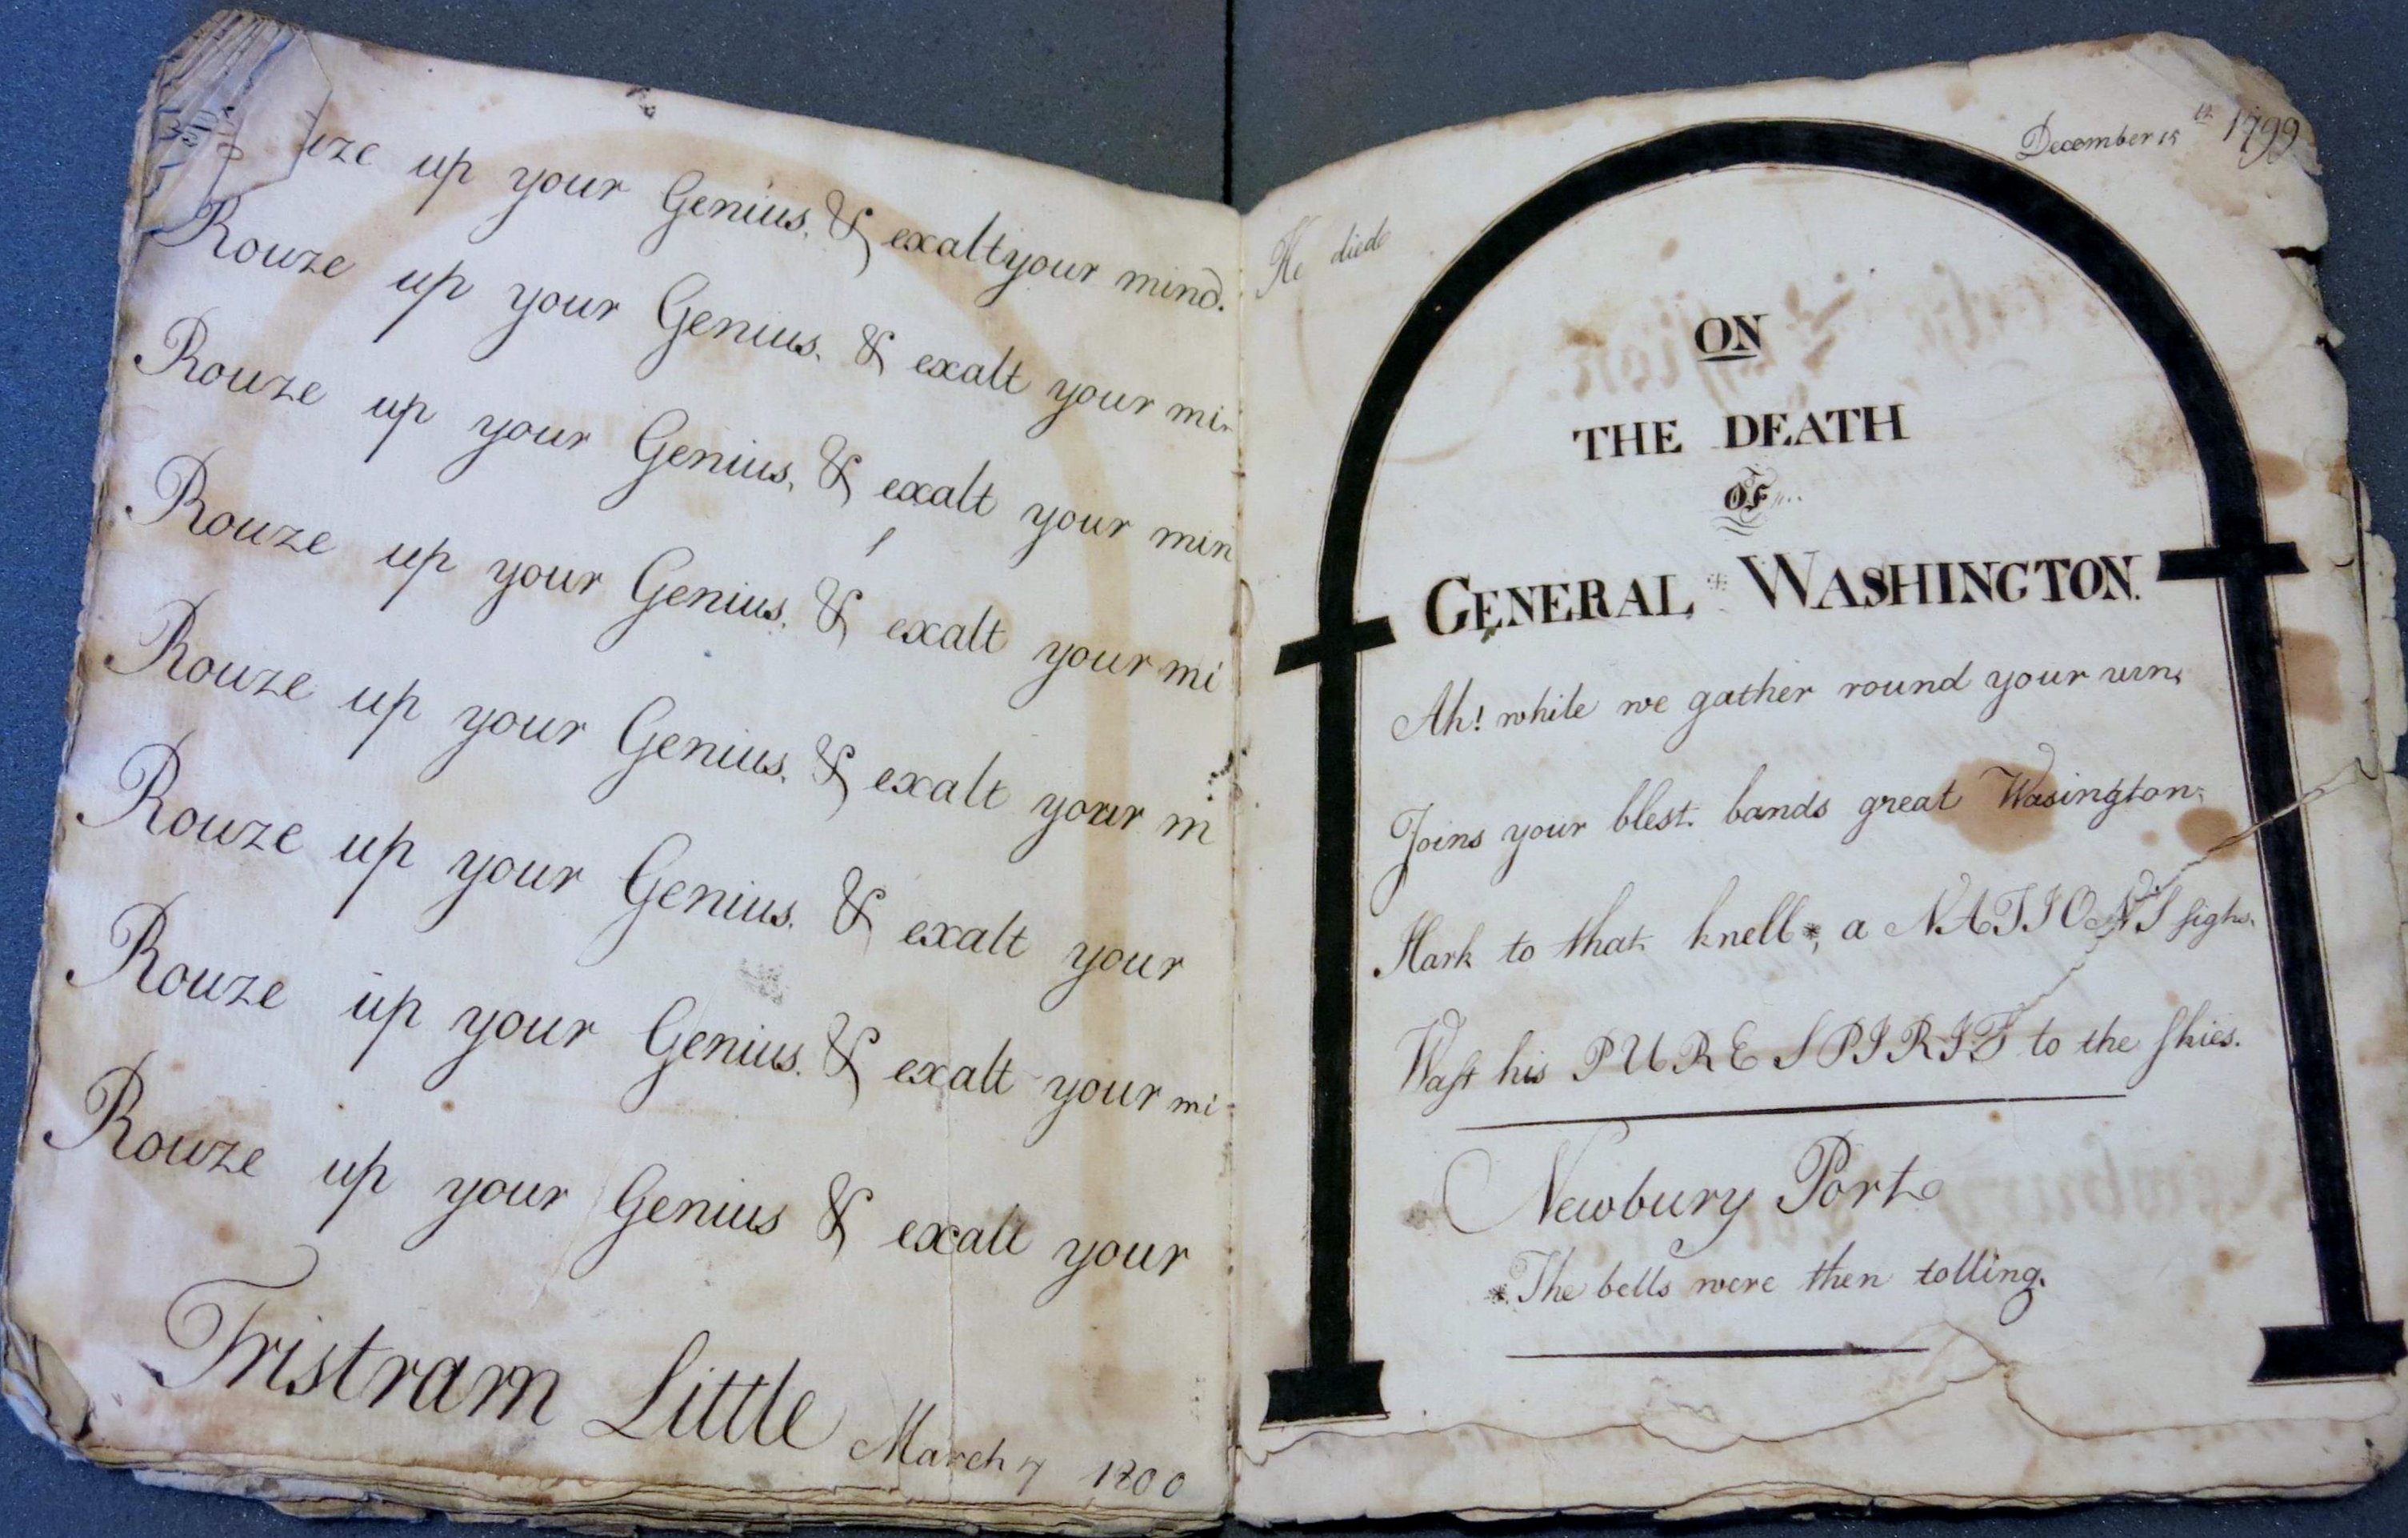 uze up your Genius. & exalt your mind.
Rouze up your Genius. & exalt your mi
Rouze up your Genius. & exalt your min
Rouze up your Genius. & exalt your mi
Rouze up your Genius. & exalt your m
Rouze up your Genius. & exalt your
Rouze up your Genius. & exalt your mi
Rouze up your Genius & exalt your
Tristram Little March 7 1800
He died December 15th 1799
ON
THE DEATH
OF
GENERAL * WASHINGTON.
Ah! while we gather round your urn,
Joins your blest bands great Wasington;
Hark to that knell*, a NATIONS sighs.
Waft his PURE SPIRIT to the skies.
Newbury Port
*The bells were then tolling.